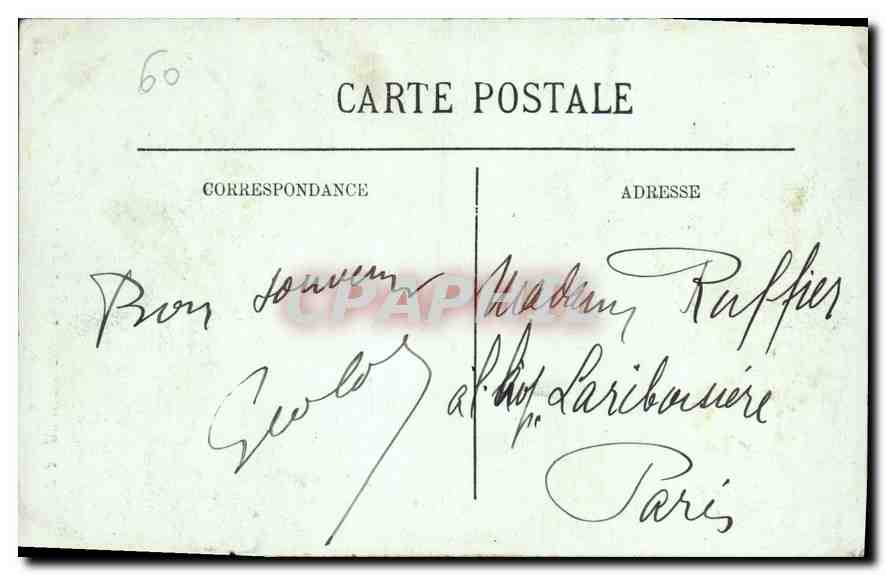 60
CARTE POSTALE
CORRESPONDANCE
ADRESSE
Bon souvenir
Madame Ruffier
à l'hop. Lariboisière
Paris
CPAPHIL